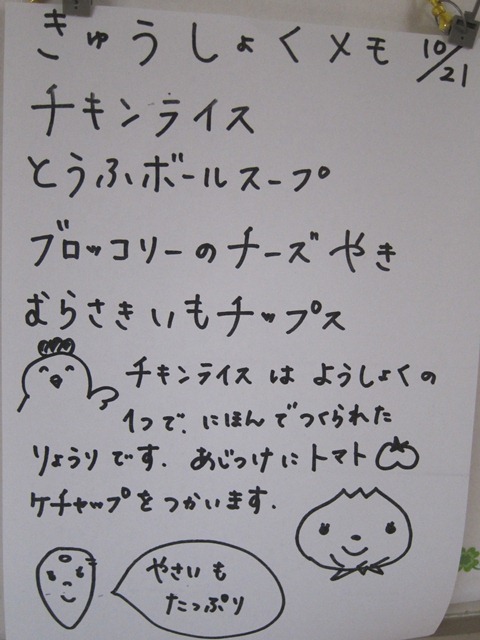 きゅうしょくメモ 10/21
チキンライス
とうふボールスープ
ブロッコリーのチーズやき
むらさきいもチップス
チキンライスはようしょくの
1つで、にほんでつくられた
りょうりです。あじつけにトマト
ケチャップをつかいます。
やさいも
たっぷり